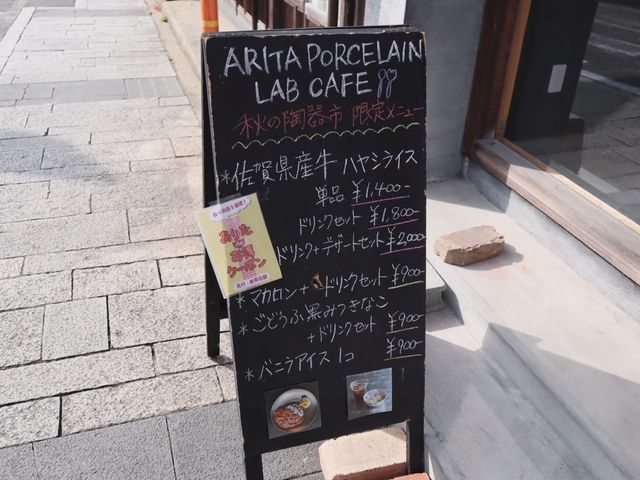 ARITA PORCELAIN
LAB CAFE
秋の陶器市 限定メニュー
*佐賀県産牛 ハヤシライス
単品 ¥1,400-
ドリンクセット ¥1,800-
ドリンク+デザートセット ¥2,000-
ありた
お買
クーポン
*マカロン+ドリンクセット ¥900-
*ごどうふ黒みつきなこ
+ドリンクセット ¥900-
*バニラアイス1コ ¥900-